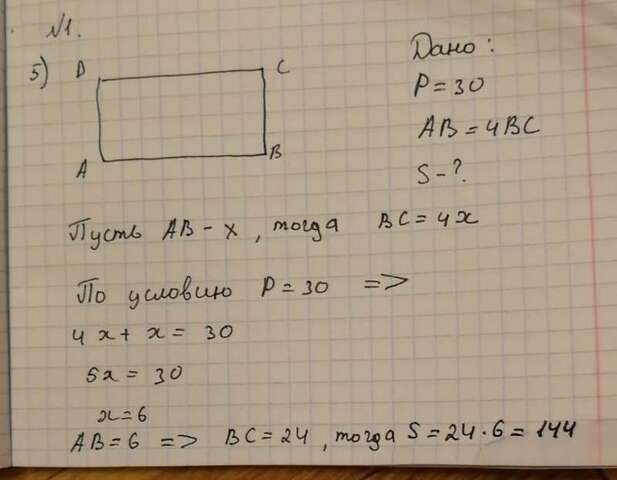 №1.
5) D C
A B
Дано:
P = 30
AB = 4BC
S - ?
Пусть AB - x, тогда BC = 4x
По условию P = 30 =>
4x + x = 30
5x = 30
x = 6
AB = 6 => BC = 24, тогда S = 24 · 6 = 144